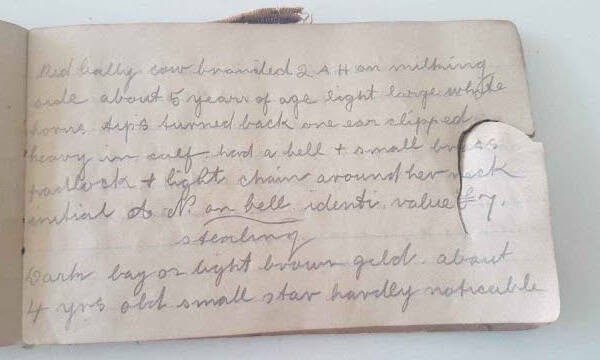 Red bally cow branded 2 A H on milking
side about 5 years of age light large white
horns tips turned back one ear clipped
heavy in calf. had a bell + small brass
padlock + light chain around her neck
initial N. on bell identi. value £7.
stealing
Dark bay or light brown geld. about
4 yrs old small star hardly noticable